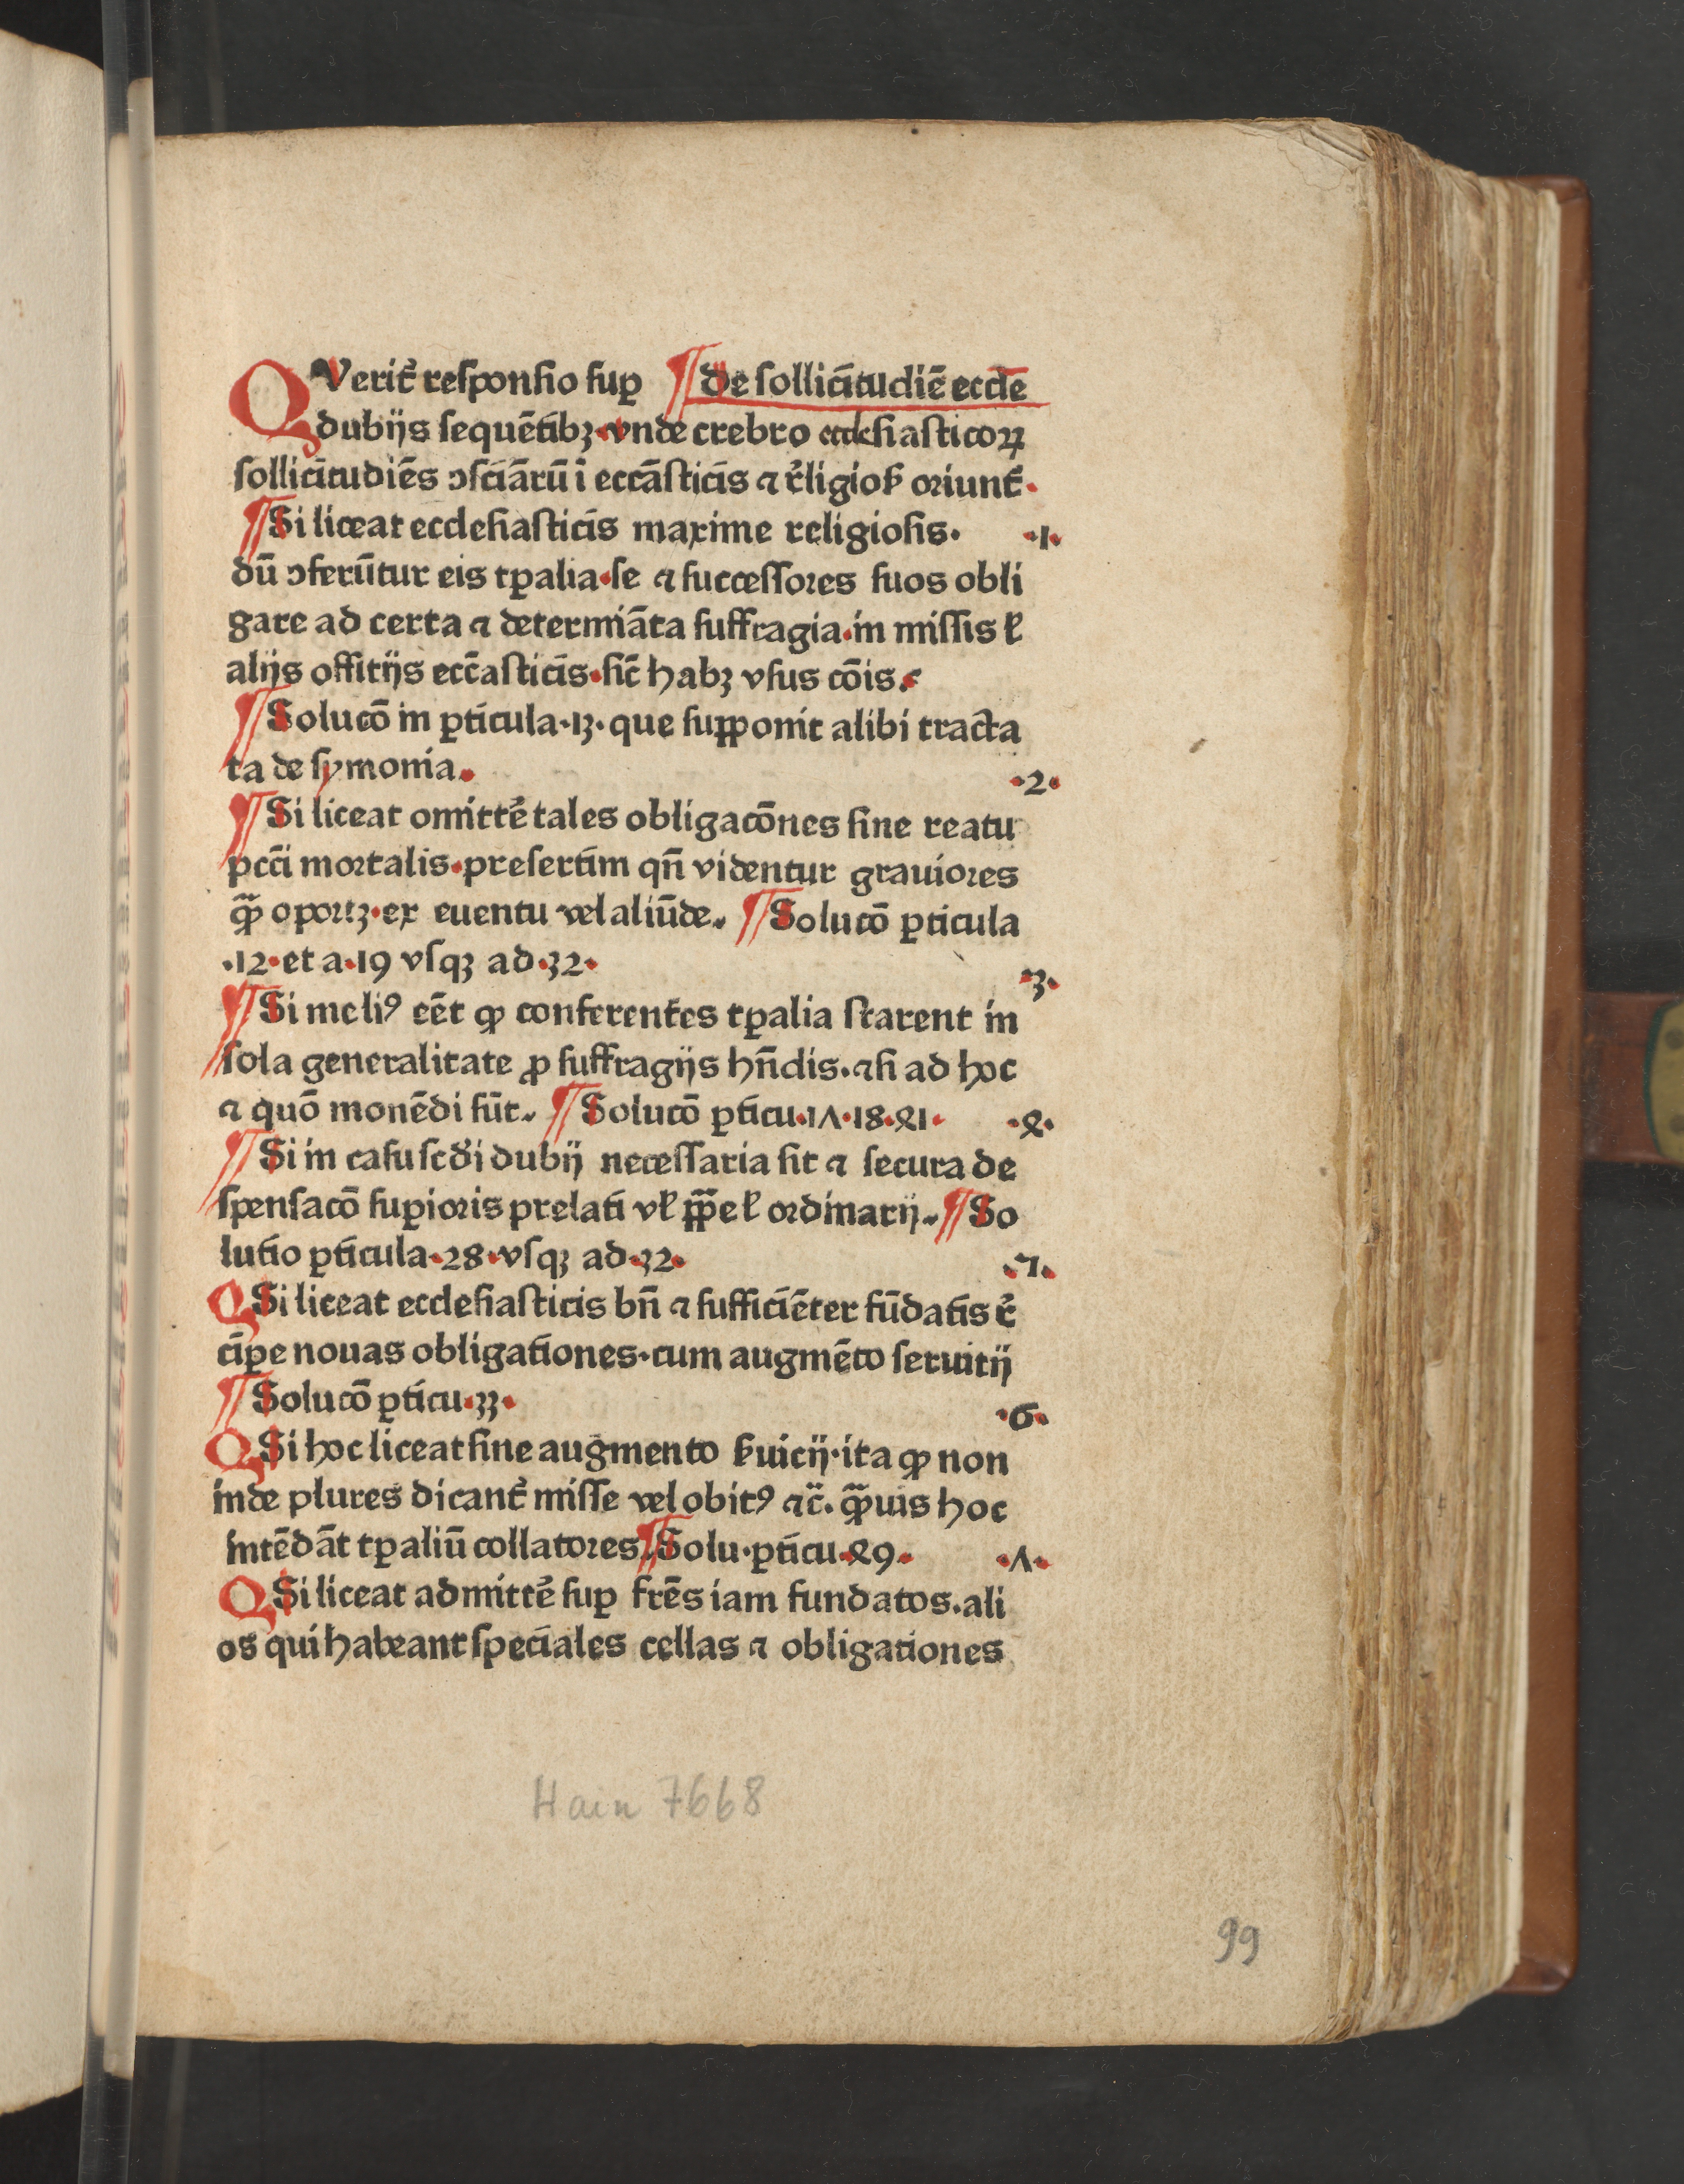 QVerit᷑ responsio sup̲ ¶ De sollicitudiē eccl̄e
dubijs sequētibꝫ·vnde crebro ecclesiasticoꝝ
sollicitudiēs ↄsciārū ī eccāsticis ⁊ r᷑ligioꝭ oriunt᷑·
¶ Si liceat ecclesiasticis maxime religiosis· ·1·
dū ↄferūtur eis tꝑalia·se ⁊ successores suos obli
gare ad certa ⁊ determīata suffragia·in missis ł
alijs offitijs ecc̄asticis·sic̄ habꝫ vsus cōis.
¶ Solucō in ꝑticula·13·que supponit alibi tracta
ta de symonia.
·2·
¶ Si liceat omittē tales obligacōnes sine reatu
pcc̄i mortalis·presertim qn̄ videntur grauiores
qͣ̄ oportꝫ·ex euentu vel aliūde. ¶ Solucō ꝑticula
·12·et a·19 vsqꝫ ad·32·
·3·
¶ Si meliꝰ eēt ꝙ conferentes tꝑalia starent in
sola generalitate ꝓ suffragijs hn̄dis.⁊ si ad hoc
⁊ quō monēdi sūt. ¶ Solucō ꝑticu·17·18·41· ·4·
¶ Si in casu scd̄i dubij necessaria sit ⁊ secura de
spensacō suꝑioris prelati vł pp̄e ł ordinarij. ¶ So
lutio ꝑticula·28·vsqꝫ ad·32·
·5·
Q Si liceat ecclesiasticis bn̄ ⁊ sufficiēter fūdatis r᷑
ciꝑe nouas obligationes·cum augmēto seruitij
¶ Solucō ꝑticu·33·
·6·
Q Si hoc liceat sine augmento ꝭuicij·ita ꝙ non
inde plures dicant᷑ misse vel obitꝰ ⁊c̄. qͣ̄uis hoc
intēdāt tꝑaliū collatores. ¶ Solu·ꝑticu·49· ·7·
Q Si liceat admittē suꝑ frēs iam fundatos.ali
os qui habeant speciales cellas ⁊ obligationes
Hain 7668
99